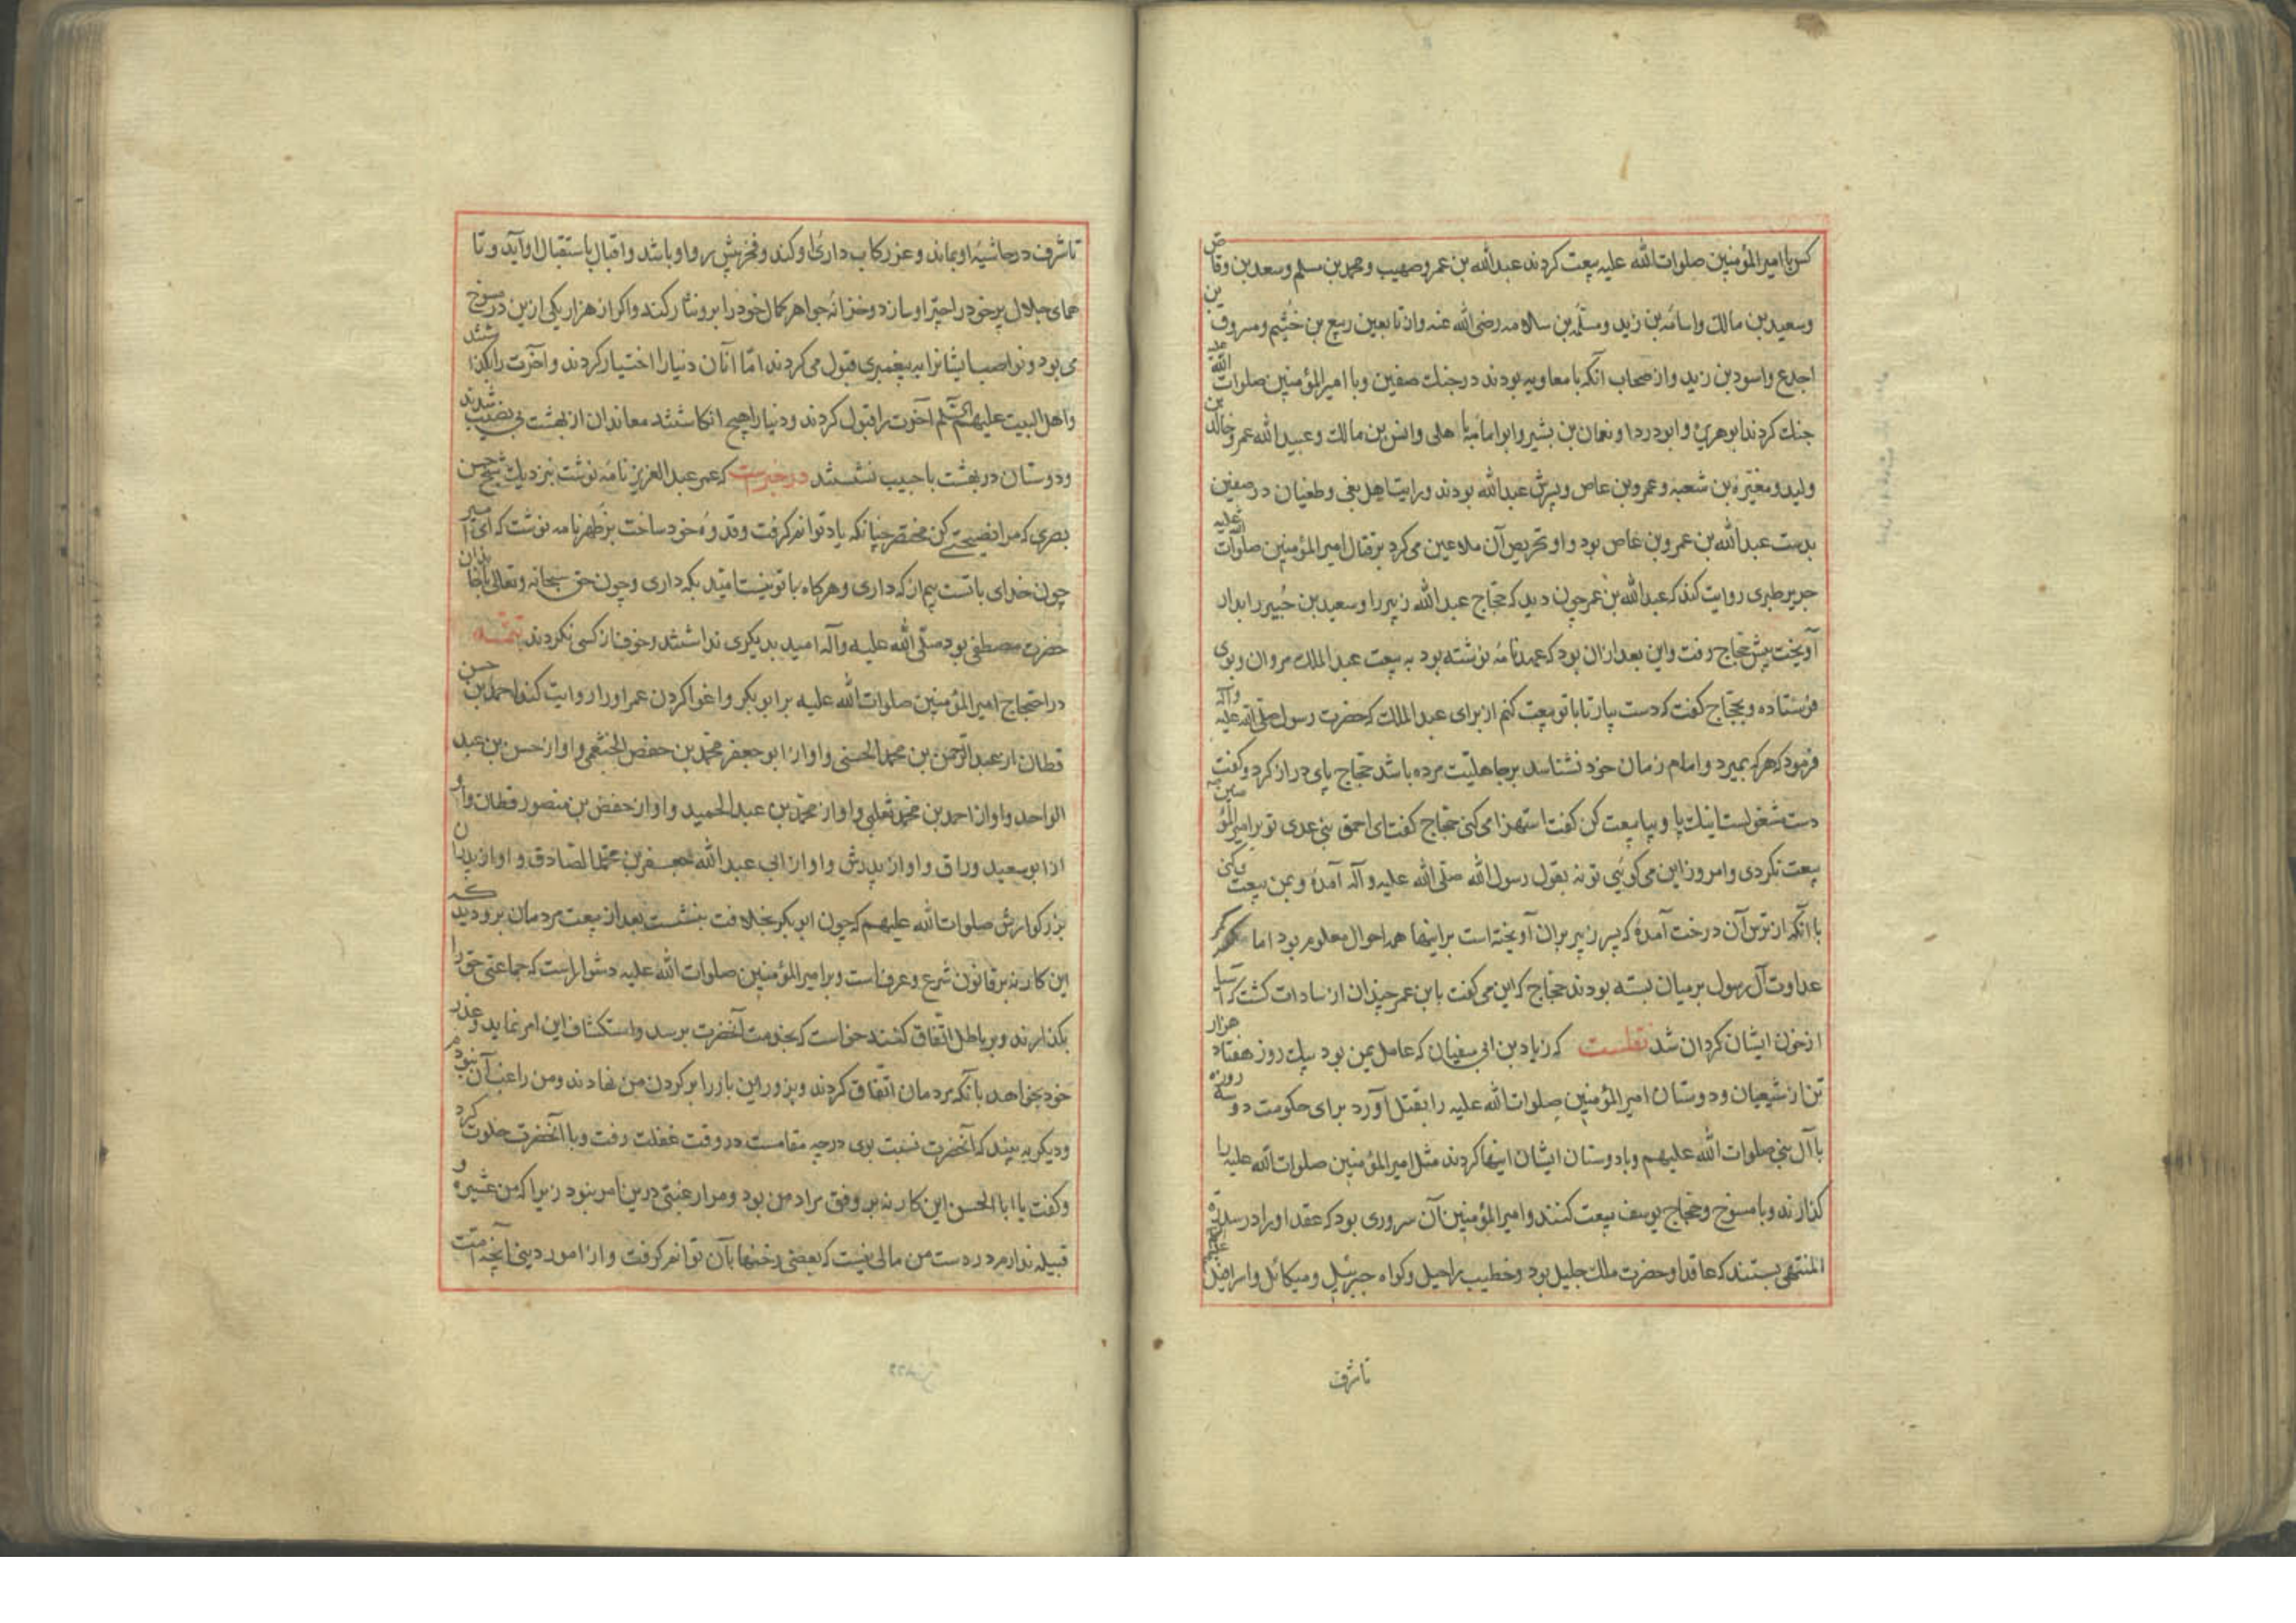 کس با امیر المؤمنین صلوات الله علیه بیعت کردند عبدالله بن عمر و صهیب و محمد بن مسلم و سعد بن وقاص
و سعید بن مالک و اسامه بن زید و مسلمه بن سلامه رضی الله عنه و از تابعین ربیع بن خثیم و مسروق بن
اجدع و اسود بن زید و از صحاب آنکه با معاویه بودند در جنک صفین و با امیر المؤمنین صلوات الله علیه
جنک کردند ابو هریره و ابو دردا و نعمان بن بشیر و ابو امامه باهلی و انس بن مالک و عبید الله عمر و خالد بن
ولید و مغیره بن شعبه و عمرو بن عاص و پسرش عبدالله بودند و رایت اهل بغی و طغیان در صفین
بدست عبدالله بن عمرو بن عاص بود و او تحریص آن ملاعین می کرد بر قتال امیر المؤمنین صلوات الله علیه
جریر طبری روایت کند که عبدالله بن عمر چون دید که حجاج عبدالله زبیر را و سعید بن جبیر را بدار
آویخت پیش حجاج رفت و این بعد ازان بود که عهد نامه نوشته بود به بیعت عبد الملک مروان و بوی
فرستاده و بحجاج کفت که دست بیار تا با تو بیعت کنم از برای عبد الملک که حضرت رسول صلی الله علیه وآله
فرمود که هر که بمیرد و امام زمان خود نشناسد بر جاهلیت مرده باشد حجاج پای دراز کرد و کفت
دست مشغولست اینک پا و بپا بیعت کن کفت استهزا می کنی حجاج کفت ای احمق بنی عدی تو بر امیر المؤمنین
بیعت نکردی و امروز این می کوئی تو نه بقول رسول الله صلی الله علیه و آله آمدهٔ و بمن بیعت می کنی
با آنکه از ترس آن درخت آمدهٔ که پسر زبیر بران آویخته است بر اینها همه احوال معلوم بود اما کمر
عداوت آل رسول بر میان بسته بودند حجاج که این می کفت با ابن عمر چندان از سادات کشت که آسیا
از خون ایشان کردان شد نقلست که زیاد بن ابی سفیان که عامل یمن بود بیک روز هفتاد هزار
تن از شیعیان و دوستان امیر المؤمنین صلوات الله علیه را بقتل آورد برای حکومت دو سه روزه
با آل نبی صلوات الله علیهم و با دوستان ایشان اینها کردند مثل امیر المؤمنین صلوات الله علیه را
کذارند و با مسنوخ و حجاج یوسف بیعت کنند و امیر المؤمنین آن سروری بود که عقد او را در سدرة
المنتهی بستند که عاقد او حضرت ملک جلیل بود و خطیب راحیل و کواه جبرئیل و میکائل و اسرافیل علیهم
تا شرف
تا شرف در حاشیهٔ او بماند و عز رکاب دارئ او کند و فخر پیش رو او باشد و اقبال باستقبال او آید و تا
همای جلال پر خود را چتر او سازد و خزانهٔ جواهر کمال خود را برو نثار کند و اکر از هزار یکی ازین در مسنوخ
می بود و نواصب ایشانرا به پیغمبری قبول می کردند اما آنان دنیا را اختیار کردند و آخرت را بکذاشتند
و اهل البیت علیهم السلم آخرت را قبول کردند و دنیا را هیچ انکاشتند معاندان از بهشت بی نصیب شدند
و دوستان در بهشت با حبیب نشستند در خبرست که عمر عبد العزیز نامه نوشت بنزدیک شیخ حسن
بصری که مرا نصیحتی کن مختصر چنانکه یاد توانم کرفت و قدوهٔ خود ساخت بر ظهر نامه نوشت که ای امیر
چون خدای با تست بیم از که داری و هر کاه با تو نیست امید بکه داری و چون حق سبحانه و تعالی با خاندان
حضرت مصطفی بود صلی الله علیه وآله امید بدیکری نداشتند و خوف از کسی نکردند تتمه
در احتجاج امیر المؤمنین صلوات الله علیه بر ابو بکر و اغوا کردن عمر او را روایت کند احمد بن حسن
قطان از عبد الرحمن بن محمد الحسنی و او از ابو جعفر محمد بن حفص الخثعمی و او از حسن بن عبد
الواحد و او از احمد بن محمد ثعلبی و او از محمد بن عبد الحمید و او از حفص بن منصور قطان و او
از ابو سعید وراق و او از پدرش و او از ابی عبد الله جعفر بن محمد الصادق و او از پدران
بزرکوارش صلوات الله علیهم که چون ابو بکر بخلافت بنشست بعد از بیعت مردمان برو دید که
این کار نه بر قانون شرع و عرف است و بر امیر المؤمنین صلوات الله علیه دشوار است که جماعتی حق را
بکذارند و بر باطل اتفاق کنند خواست که بخدمت آنحضرت برسد و استکشاف این امر نماید و عذر
خود بخواهد با آنکه مردمان اتفاق کردند و بزور این بار را بر کردن من نهادند و من راغب آن نبودم
و دیکر به بیند که آنحضرت نسبت بوی درچه مقامست در وقت غفلت رفت و با آنحضرت خلوت کرد
و کفت یا ابا الحسن این کار نه بر وفق مراد من بود و مرا رغبتی درین امر نبود زیرا که من عشیره و
قبیله ندارم و در دست من مالی نیست که بعضی رخنها بآن توانم کرفت و از امور دینی آنچه امت